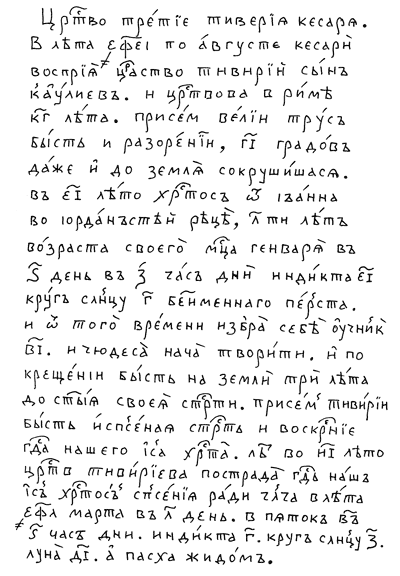 Цр҃тво тре́тїе тиверїѧ кесарѧ.
В лѣ́та ҂ефе҃і по а́вгꙋсте кесарѝ
воспрїѧ̀ ца҃рство тивирїѝ сы́нъ
ка́ꙋлиевъ. и цр҃твова в ри́мѣ
к҃г лѣ́та. присе́м ве́лїи трꙋ́съ
бы́сть и разоре́нїи, г҃і градо́въ
да́же и҆ до землѧ̀ сокрꙋши́шасѧ.
въ е҃і лѣ́то хр҃то́съ ѿ іѡа́нна
во іорда́нъстѣй рѣцѣ̀, л҃ ти лѣ́тъ
во́зраста своегѡ̀ мц҃а генварѧ̀ въ
ѕ҃ день въ з҃ ча́съ днѝ инди́кта е҃і
крꙋ́гъ сл҃нцꙋ г҃ бе́йменнаго пе́рста.
и ѿ тогѡ̀ вре́мени избра̀ себѣ̀ оу҆чн҃и́к
в҃і. и чюдеса̀ нача̀ твори́ти. и҆ по
креще́нїи бы́сть на землѝ трѝ лѣ́та
до ст҃ы́ѧ своеѧ̀ стр҃ти. присе́м тиви́рїи
бы́сть и҆спⷭ҇е́наѧ стр҃ть и воскр҃нїе
гд҃а нашего іс҃а хр҃та̀. лѣ̀ во и҃і лѣ́то
цр҃тв тиви́рїева пострада̀ гд҃ь на́шъ
і҆с҃ъ хр҃то́съ спⷭ҇е́нїѧ ра́ди чл҃ча в лѣ́та
҂ефл҃ марта въ л҃ день. в пѧто́къ въ
ѕ҃ часъ дни. инди́кта г҃. крꙋгъ сл҃нцꙋ з҃.
лꙋна̀ д҃і. а҆ пасха жидо́мъ.